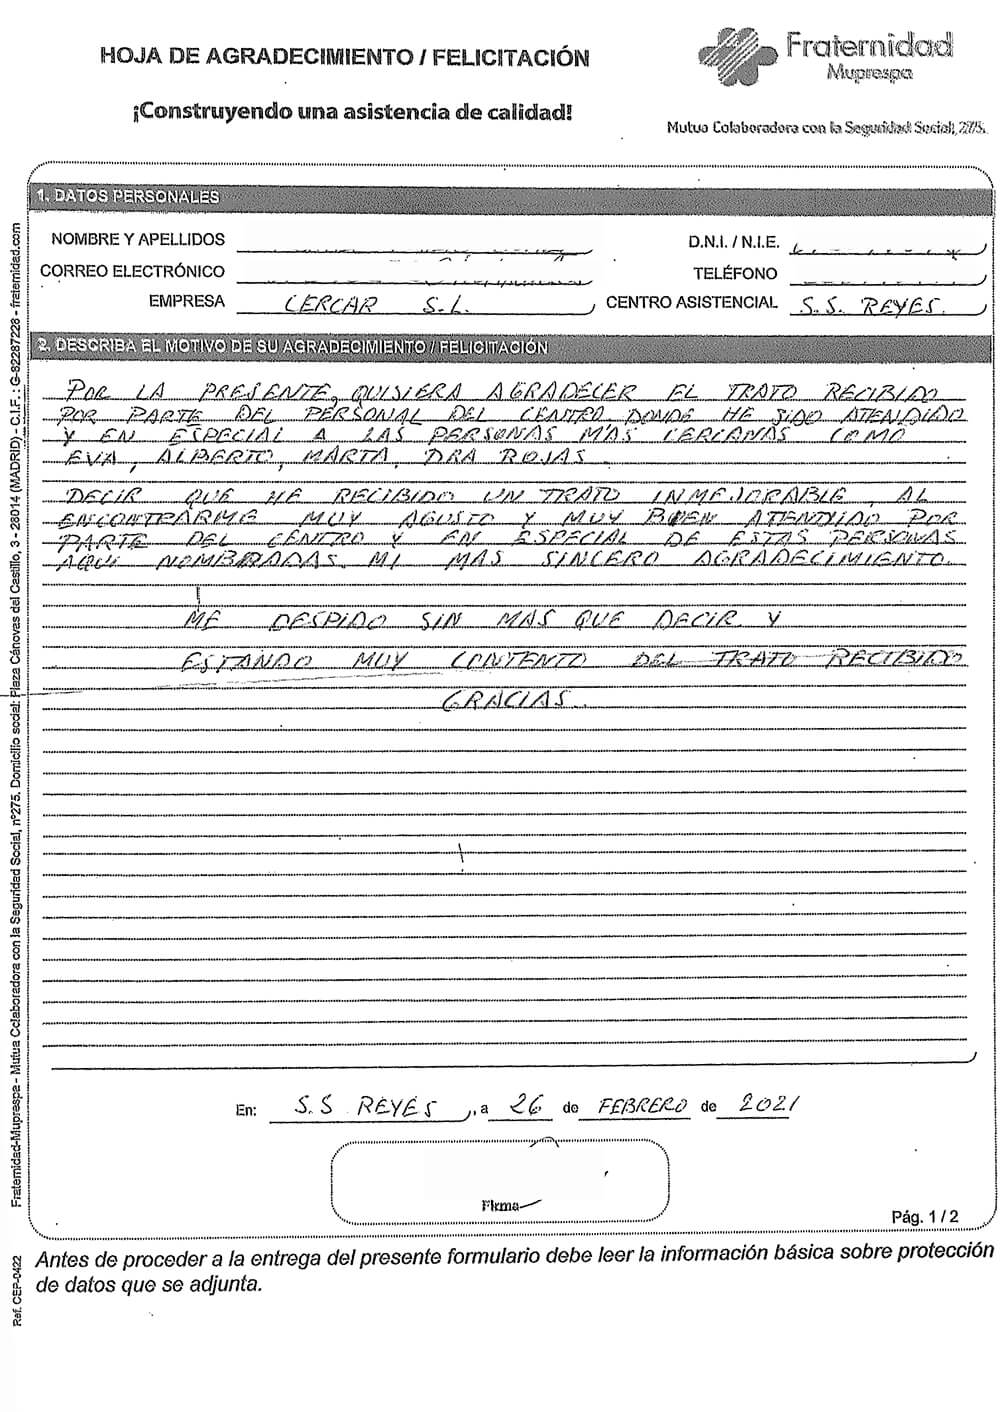 HOJA DE AGRADECIMIENTO / FELICITACIÓN
¡Construyendo una asistencia de calidad!
Fraternidad
Muprespa
Mutua Colaboradora con la Seguridad Social, 275.
1. DATOS PERSONALES
NOMBRE Y APELLIDOS
D.N.I. / N.I.E.
CORREO ELECTRÓNICO
TELÉFONO
EMPRESA CERCAR S.L.
CENTRO ASISTENCIAL S.S. REYES.
2. DESCRIBA EL MOTIVO DE SU AGRADECIMIENTO / FELICITACIÓN
POR LA PRESENTE, QUISIERA AGRADECER EL TRATO RECIBIDO
POR PARTE DEL PERSONAL DEL CENTRO DONDE HE SIDO ATENDIDO
Y EN ESPECIAL A LAS PERSONAS MAS CERCANAS COMO
EVA, ALBERTO, MARTA, DRA ROJAS.
DECIR QUE HE RECIBIDO UN TRATO INMEJORABLE, AL
ENCONTRARME MUY AGUSTO Y MUY BIEN ATENDIDO POR
PARTE DEL CENTRO Y EN ESPECIAL DE ESTAS PERSONAS
AQUI NOMBRADAS. MI MAS SINCERO AGRADECIMIENTO.
ME DESPIDO SIN MAS QUE DECIR Y
ESTANDO MUY CONTENTO DEL TRATO RECIBIDO
GRACIAS.
En: S.S REYES, a 26 de FEBRERO de 2021
Firma
Pág. 1 / 2
Antes de proceder a la entrega del presente formulario debe leer la información básica sobre protección
de datos que se adjunta.
Fraternidad-Muprespa - Mutua Colaboradora con la Seguridad Social, nº275. Domicilio social: Plaza Cánovas del Castillo, 3 - 28014 (MADRID) - C.I.F. : G-82287228 - fraternidad.com
Ref. CEP-0422